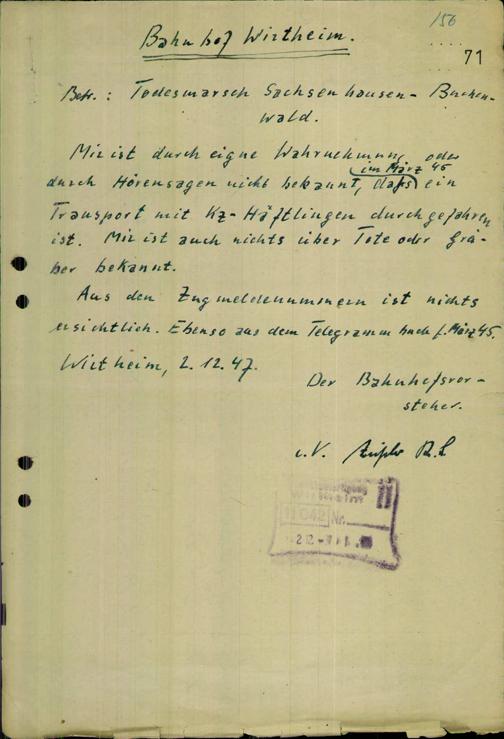 156
71
Bahnhof Wirtheim.
Betr.: Todesmarsch Sachsenhausen - Buchen-
wald.
Mir ist durch eigne Wahrnehmung oder
im März 45
durch Hörensagen nicht bekannt, daß ein
Transport mit Kz-Häftlingen durchgefahren
ist. Mir ist auch nichts über Tote oder Grä-
ber bekannt.
Aus den Zugmeldenummern ist nichts
ersichtlich. Ebenso aus dem Telegrammbuch f. März 45.
Wirtheim, 2.12.47.
Der Bahnhofsvor-
steher.
i.V.
Wirtheim
11042 Nr.